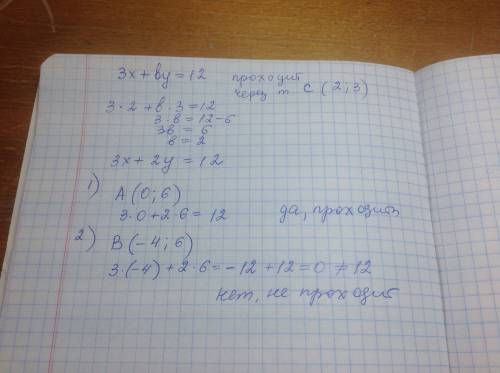 3x + by = 12 проходит через т. C (2; 3)
3 · 2 + b · 3 = 12
3 · b = 12 - 6
3b = 6
b = 2
3x + 2y = 12
1) A (0; 6)
3 · 0 + 2 · 6 = 12 да, проходит
2) B (-4; 6)
3 · (-4) + 2 · 6 = -12 + 12 = 0 ≠ 12
нет, не проходит